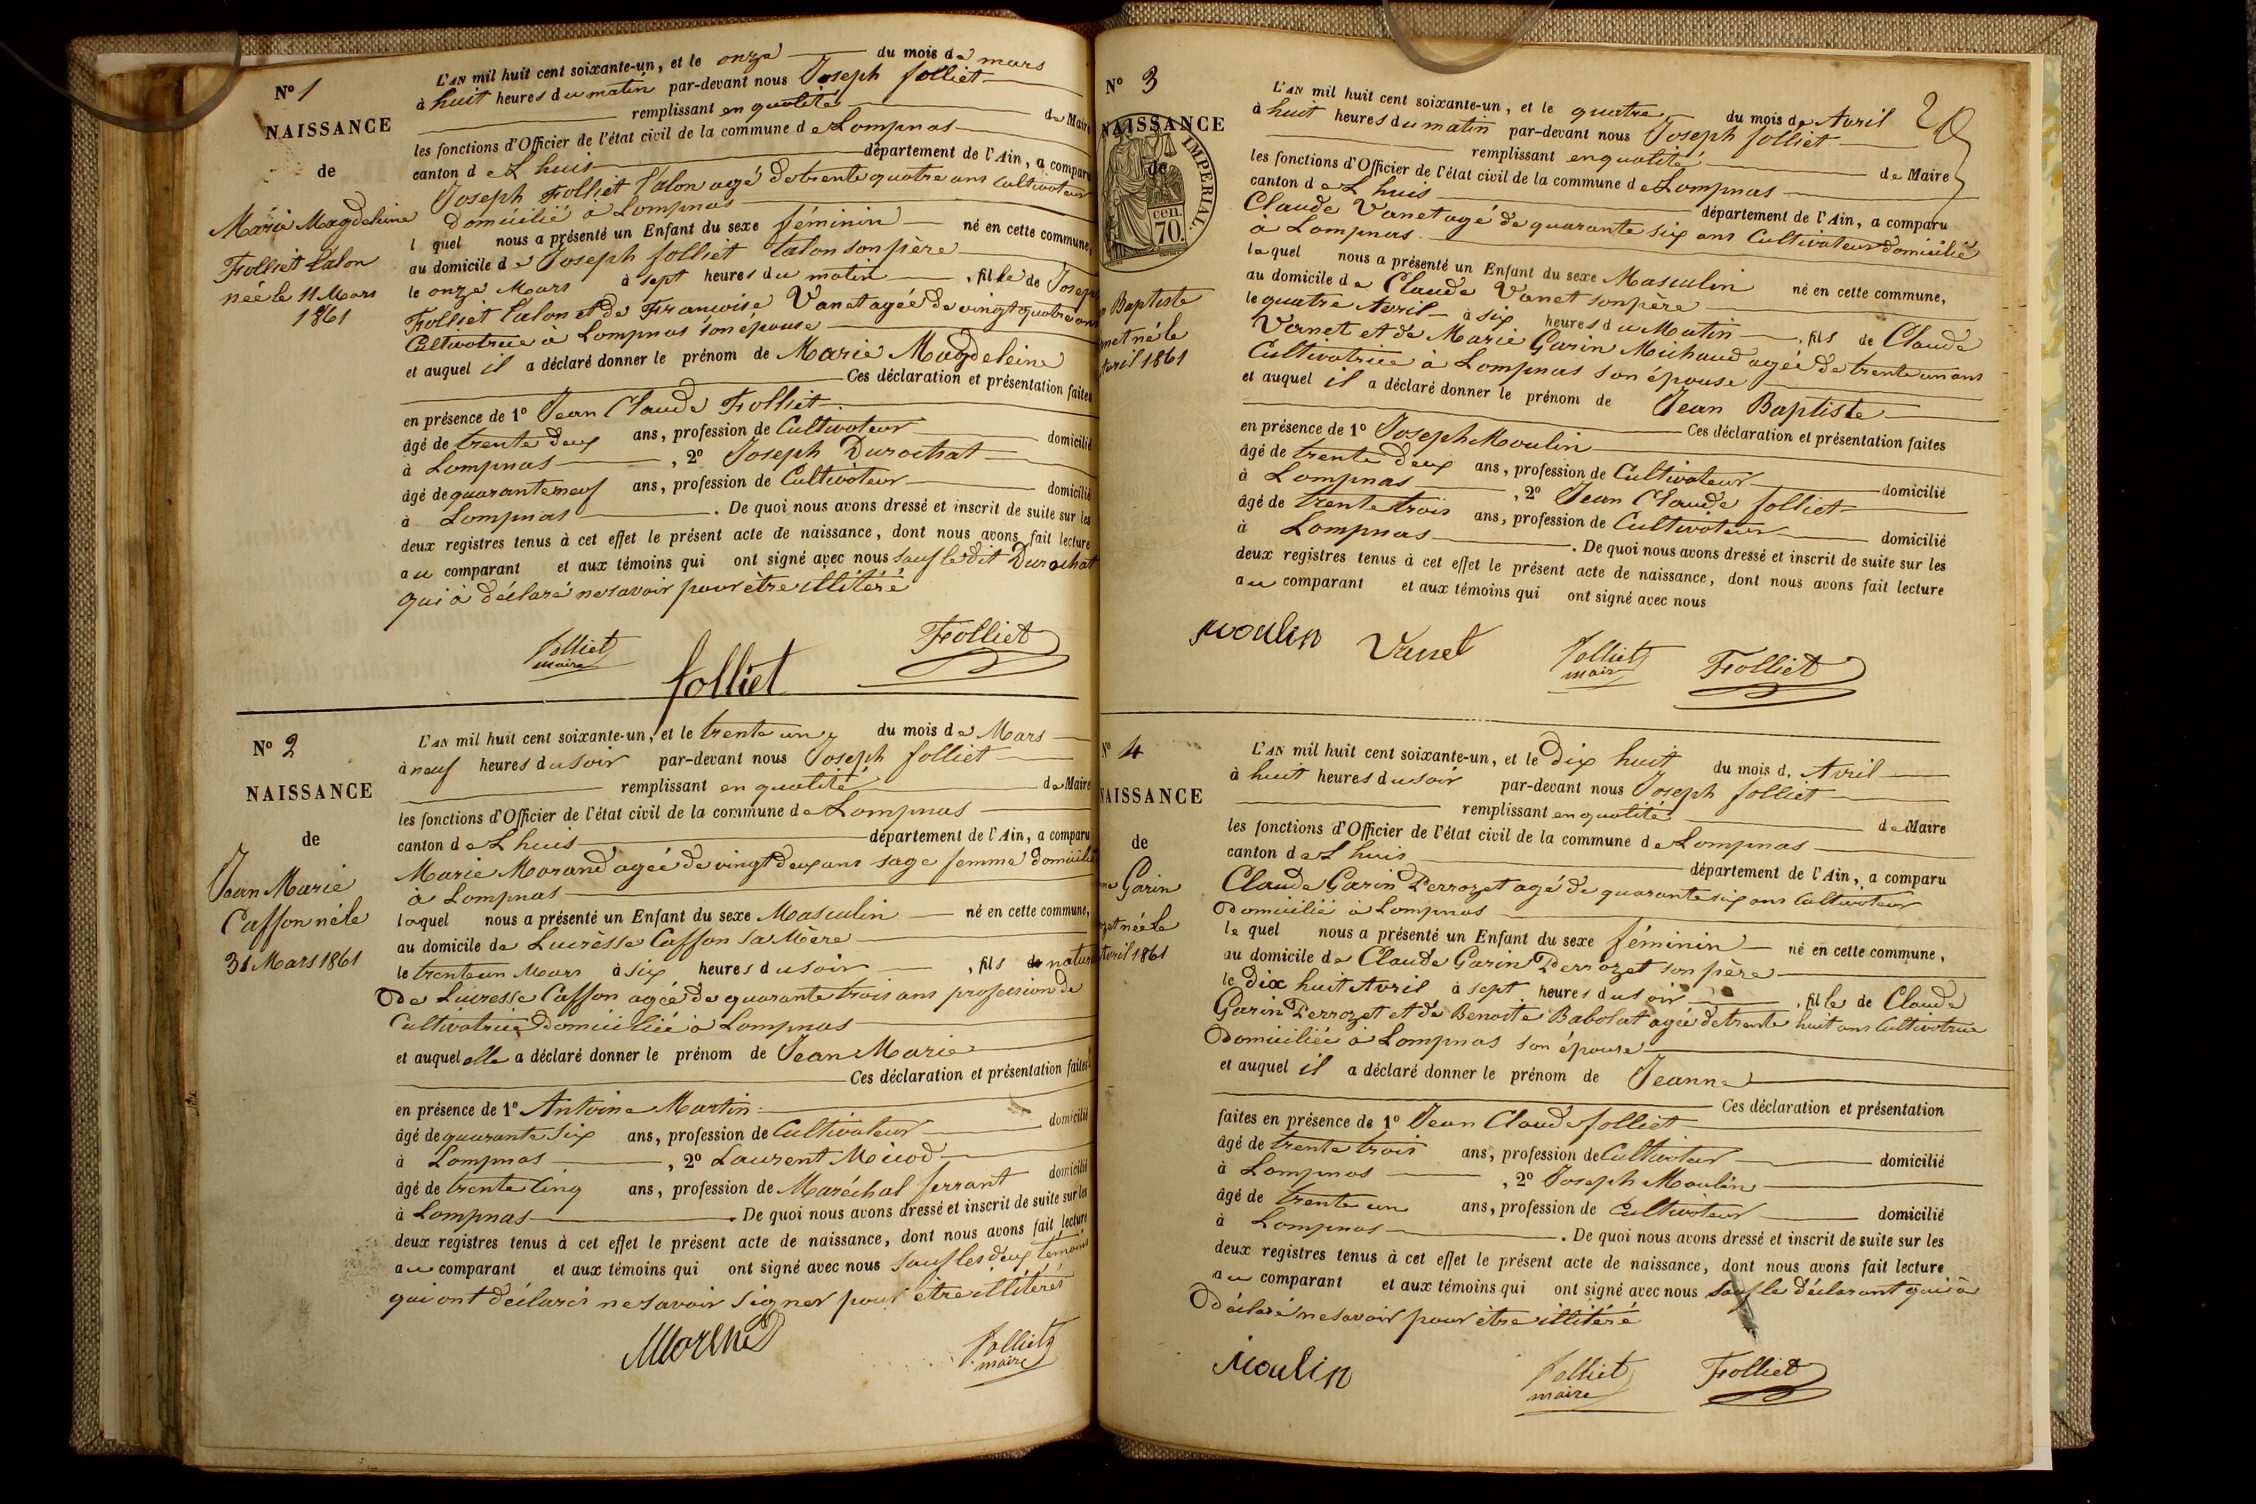 N° 1
NAISSANCE
de
Marie Magdeleine
Folliet Talon
née le 11 Mars
1861
L'AN mil huit cent soixante-un, et le onze du mois de mars
à huit heures du matin par-devant nous Joseph folliet
remplissant en qualité de Maire
les fonctions d'Officier de l'état civil de la commune de Lompnas
canton de Lhuis département de l'Ain, a comparu
Joseph Folliet Talon agé de trente quatre ans Cultivateur
domicilié à Lompnas
l quel nous a présenté un Enfant du sexe féminin né en cette commune,
au domicile de Joseph folliet talon son père
le onze Mars à sept heures du matin , fille de Joseph
Folliet Talon et de Francoise Vanet agée de vingt quatre ans
Cultivatrice à Lompnas son épouse
et auquel il a déclaré donner le prénom de Marie Magdeleine
Ces déclaration et présentation faites
en présence de 1° Jean Claude Folliet
âgé de trente deux ans, profession de Cultivateur domicilié
à Lompnas , 2° Joseph Durochat
âgé de quarante neuf ans, profession de Cultivateur domicilié
à Lompnas . De quoi nous avons dressé et inscrit de suite sur les
deux registres tenus à cet effet le présent acte de naissance, dont nous avons fait lecture
au comparant et aux témoins qui ont signé avec nous sauf le dit Durochat
qui à déclaré ne savoir pour être illitéré
folliet
maire
folliet
Folliet
N° 2
NAISSANCE
de
Jean Marie
Caffon né le
31 Mars 1861
L'AN mil huit cent soixante-un, et le trente un du mois de Mars
à neuf heures du soir par-devant nous Joseph folliet
remplissant en qualité de Maire
les fonctions d'Officier de l'état civil de la commune de Lompnas
canton de Lhuis département de l'Ain, a comparu
Marie Morand agée de vingt deux ans sage femme domicilié
à Lompnas
laquel nous a présenté un Enfant du sexe Masculin né en cette commune,
au domicile de Lucrèsse Caffon sa Mère
le trente un Mars à six heures du soir , fils de nature
de Lucresse Caffon agée de quarante trois ans profession de
Cultivatrice domiciliée à Lompnas
et auquel elle a déclaré donner le prénom de Jean Marie
Ces déclaration et présentation faites
en présence de 1° Antoine Martin
âgé de quarante six ans, profession de Cultivateur domicilié
à Lompnas , 2° Laurent Micod
âgé de trente Cinq ans, profession de Maréchal ferrant domicilié
à Lompnas . De quoi nous avons dressé et inscrit de suite sur les
deux registres tenus à cet effet le présent acte de naissance, dont nous avons fait lecture
au comparant et aux témoins qui ont signé avec nous sauf les deux temoins
qui ont déclarés ne savoir signer pour être illitérés
folliet
maire
N° 3
NAISSANCE
de
IMPERIAL.
cen.
70.
Baptiste
net né le
Avril 1861
L'AN mil huit cent soixante-un, et le quatre du mois de Avril
à huit heures du matin par-devant nous Joseph folliet
remplissant en qualité de Maire
les fonctions d'Officier de l'état civil de la commune de Lompnas
canton de Lhuis département de l'Ain, a comparu
Claude Vanet agé de quarante six ans Cultivateur domicilié
à Lompnas
lequel nous a présenté un Enfant du sexe Masculin né en cette commune,
au domicile de Claude Vanet son père
le quatre Avril à six heures du Matin , fils de Claude
Vanet et de Marie Garin Michaud agée de trente un ans
Cultivatrice à Lompnas son épouse
et auquel il a déclaré donner le prénom de Jean Baptiste
Ces déclaration et présentation faites
en présence de 1° Joseph Moulin
âgé de trente deux ans, profession de Cultivateur domicilié
à Lompnas , 2° Jean Claude folliet
âgé de trente trois ans, profession de Cultivateur domicilié
à Lompnas . De quoi nous avons dressé et inscrit de suite sur les
deux registres tenus à cet effet le présent acte de naissance, dont nous avons fait lecture
au comparant et aux témoins qui ont signé avec nous
moulin Vanet
folliet
maire
Folliet
N° 4
NAISSANCE
de
Garin
zet née le
Avril 1861
L'AN mil huit cent soixante-un, et le dix huit du mois d, Avril
à huit heures du soir par-devant nous Joseph folliet
remplissant en qualité de Maire
les fonctions d'Officier de l'état civil de la commune de Lompnas
canton de Lhuis département de l'Ain, a comparu
Claude Garin Perrozet agé de quarante six ans Cultivateur
domicilié à Lompnas
le quel nous a présenté un Enfant du sexe féminin né en cette commune,
au domicile de Claude Garin Perrozet son père
le dix huit Avril à sept heures du soir , fille de Claude
Garin Perrozet et de Benoite Babolat agée de trente huit ans Cultivatrice
domiciliée à Lompnas son épouse
et auquel il a déclaré donner le prénom de Jeanne
Ces déclaration et présentation
faites en présence de 1° Jean Claude folliet
âgé de trente trois ans, profession de Cultivateur domicilié
à Lompnas , 2° Joseph Moulin
âgé de trente un ans, profession de Cultivateur domicilié
à Lompnas . De quoi nous avons dressé et inscrit de suite sur les
deux registres tenus à cet effet le présent acte de naissance, dont nous avons fait lecture
au comparant et aux témoins qui ont signé avec nous sauf le déclarant qui à
déclaré ne savoir pour être illitéré
Moulin
folliet
maire
Folliet